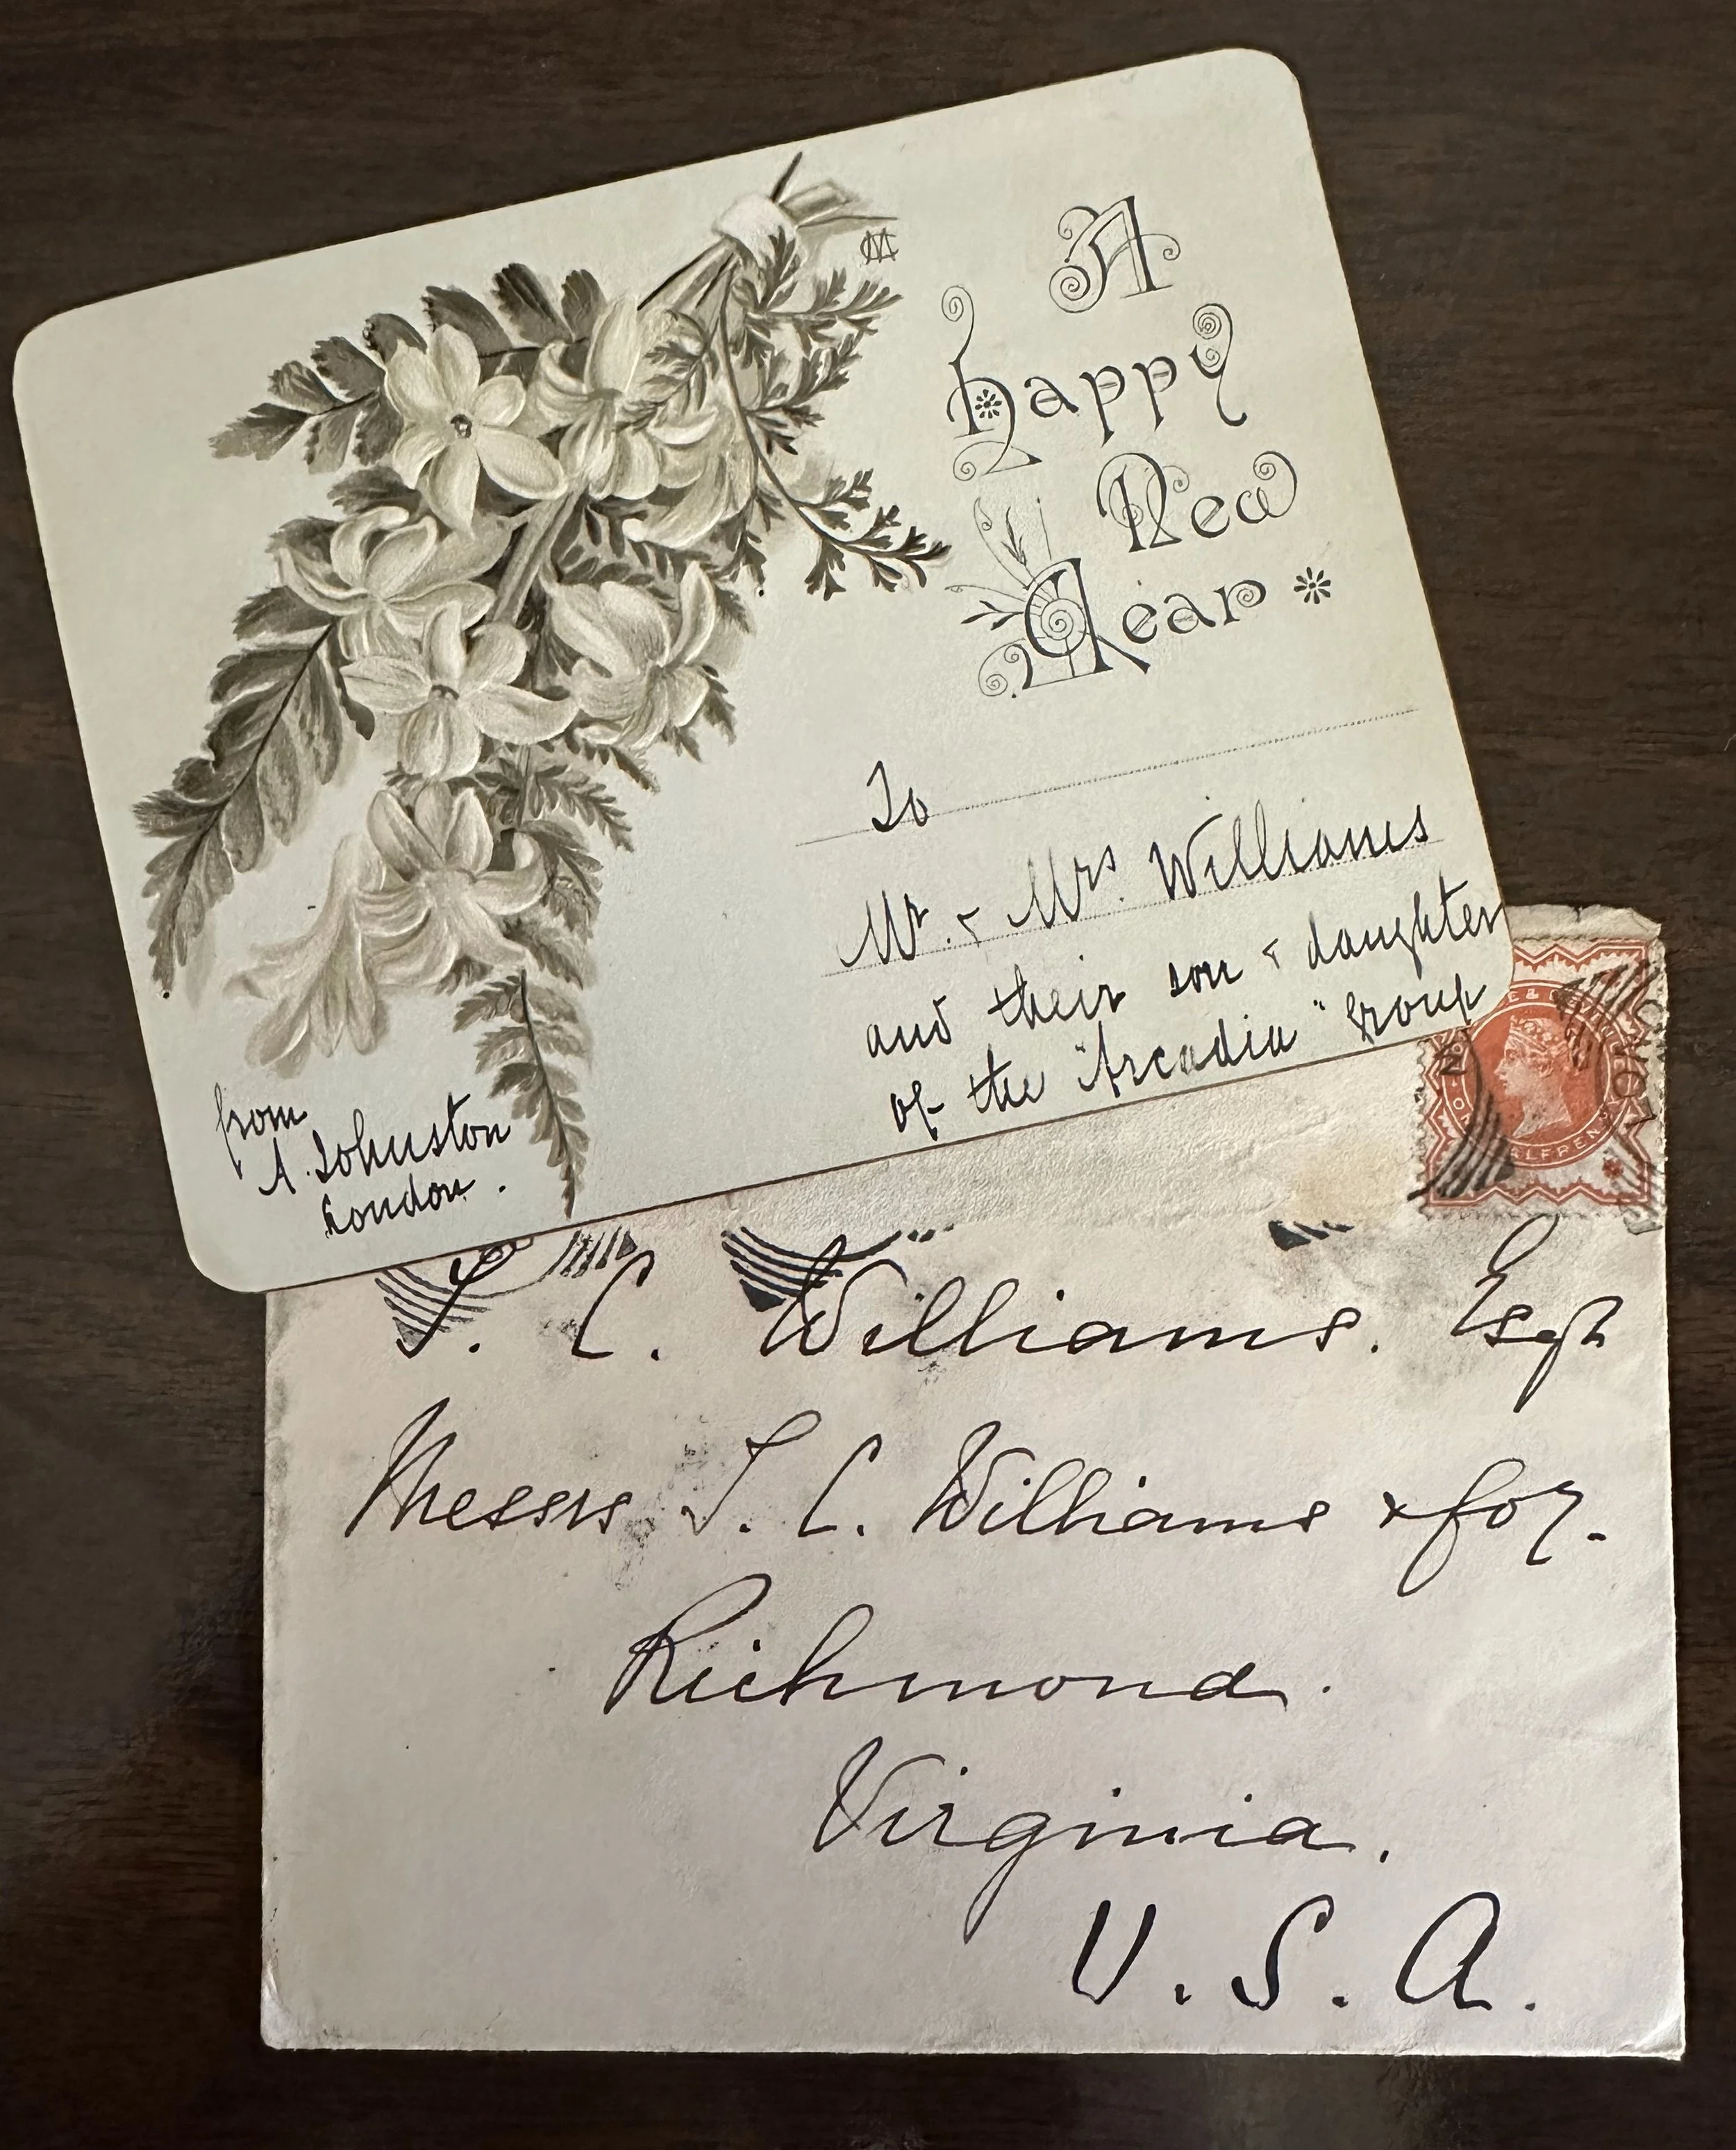 A
Happy
New
Year
To
Mr. & Mrs. Williams
and their son & daughter
of the "Arcadia" Group
from
A. Johnston
London.
T. C. Williams. Esqr
Messrs T. C. Williams & Coy.
Richmond.
Virginia.
U. S. A.